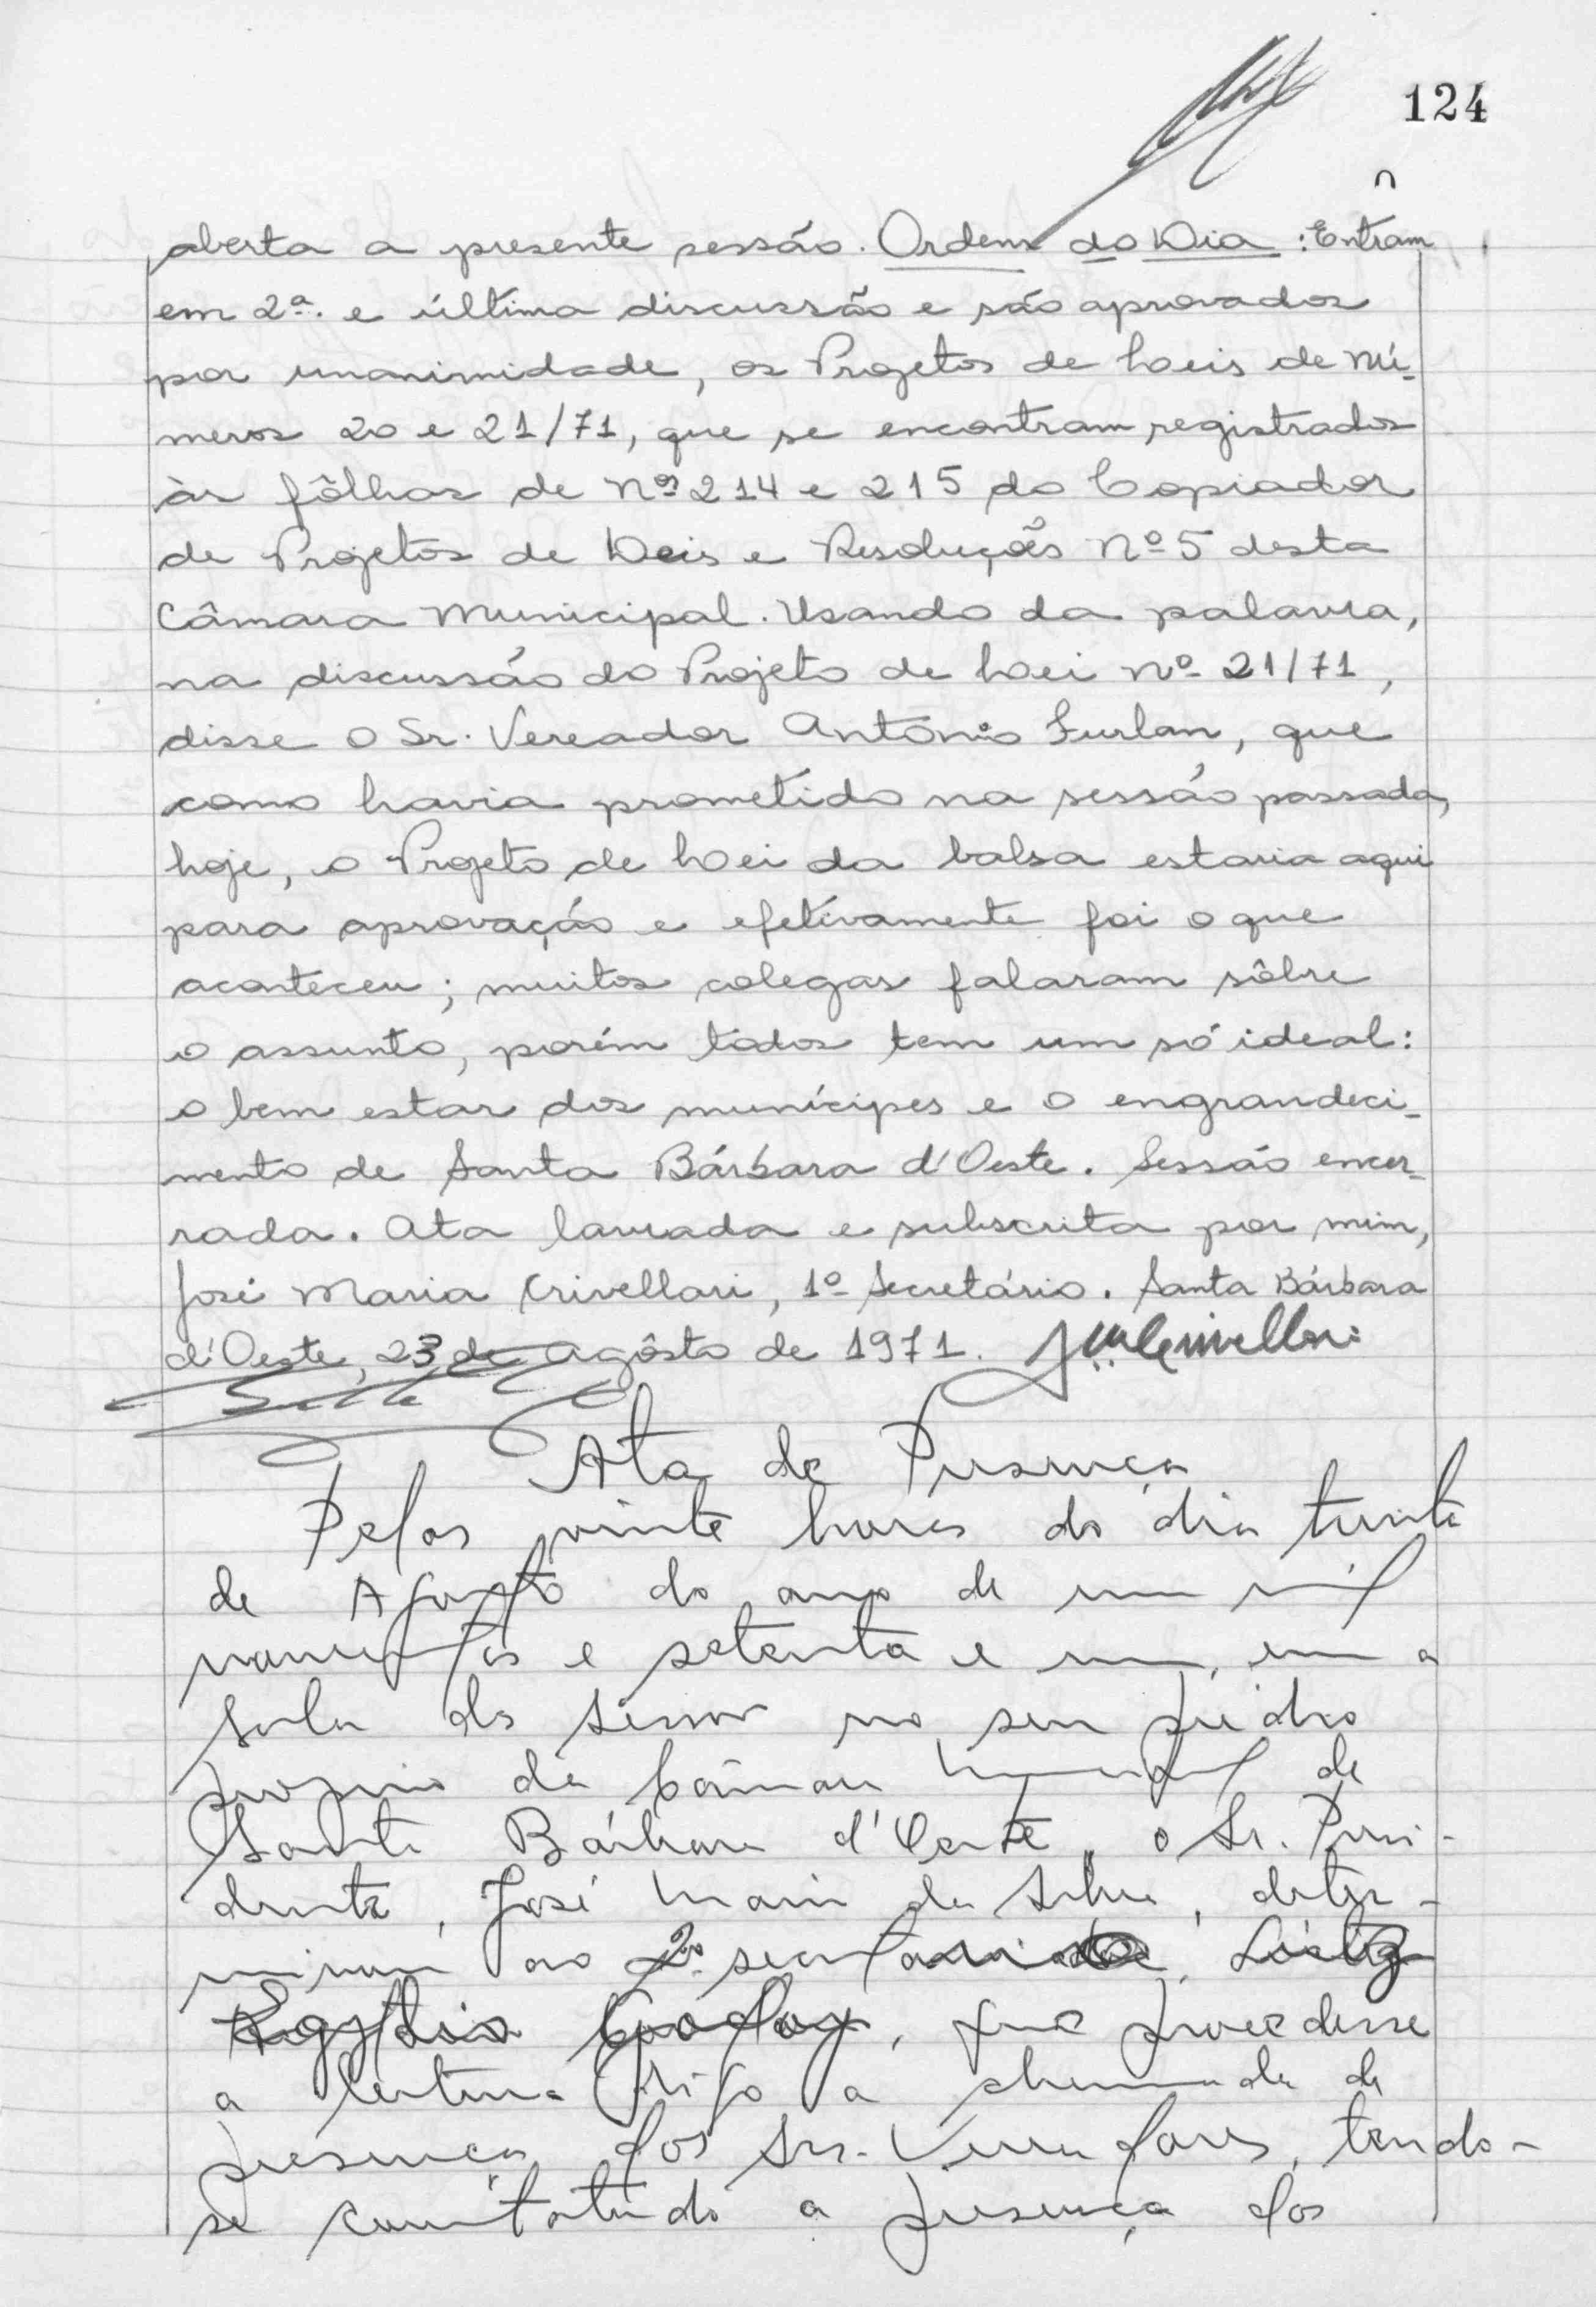 124
aberta a presente sessão. Ordem do Dia: Entram
em 2ª. e última discussão e são aprovados
por unanimidade, os Projetos de Leis de Nú-
meros 20 e 21/71, que se encontram registrados
às fôlhas de Nºs 214 e 215 do Copiador
de Projetos de Leis e Resoluções Nº 5 desta
Câmara Municipal. Usando da palavra,
na discussão do Projeto de Lei nº 21/71,
disse o Sr. Vereador Antônio Furlan, que
como havia prometido na sessão passada,
hoje, o Projeto de Lei da balsa estaria aqui
para aprovação e efetivamente foi o que
aconteceu; muitos colegas falaram sôbre
o assunto, porém todos tem um só ideal:
o bem estar dos munícipes e o engrandeci-
mento de Santa Bárbara d'Oeste. Sessão encer-
rada. Ata lavrada e subscrita por mim,
José Maria Crivellari, 1º Secretário. Santa Bárbara
d'Oeste, 23 de Agôsto de 1971. JmCrivellari
Ata de Presença
Pelas vinte horas do dia trinta
de Agosto do ano de um mil
novecentos e setenta e um, em a
sala da sessões no seu prédio
próprio da Câmara Municipal de
Santa Bárbara d'Oeste, o Sr. Presi-
dente, José Maria da Silva, deter-
minou ao 2º secretário
Egydio Godoy, que procedesse
a leitura digo a chamada de
presença dos Srs. Vereadores, tendo-
se constatado a presença dos